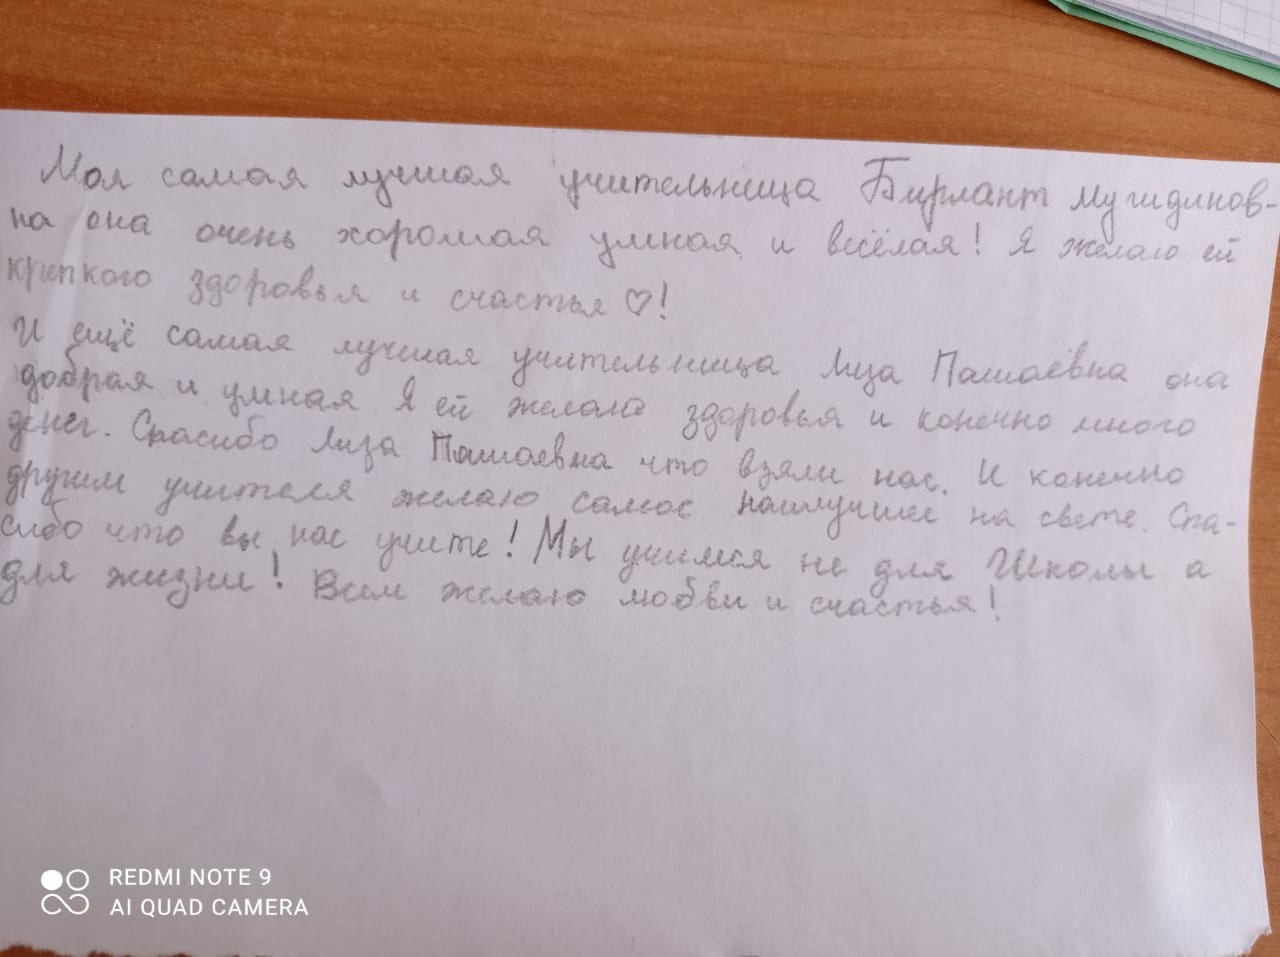 Моя самая лучшая учительница Бирлант Мугидинов-
на она очень хорошая умная и весёлая! Я желаю ей
крепкого здоровья и счастья ♡!
И ещё самая лучшая учительница Лиза Пашаевна она
добрая и умная Я ей желала здоровья и конечно много
денег. Спасибо Лиза Пашаевна что взяли нас. И конечно
другим учителя желаю самое наилучшее на свете. Спа-
сибо что вы нас учите! Мы учимся не для Школы а
для жизни! Всем желаю любви и счастья!
REDMI NOTE 9
AI QUAD CAMERA